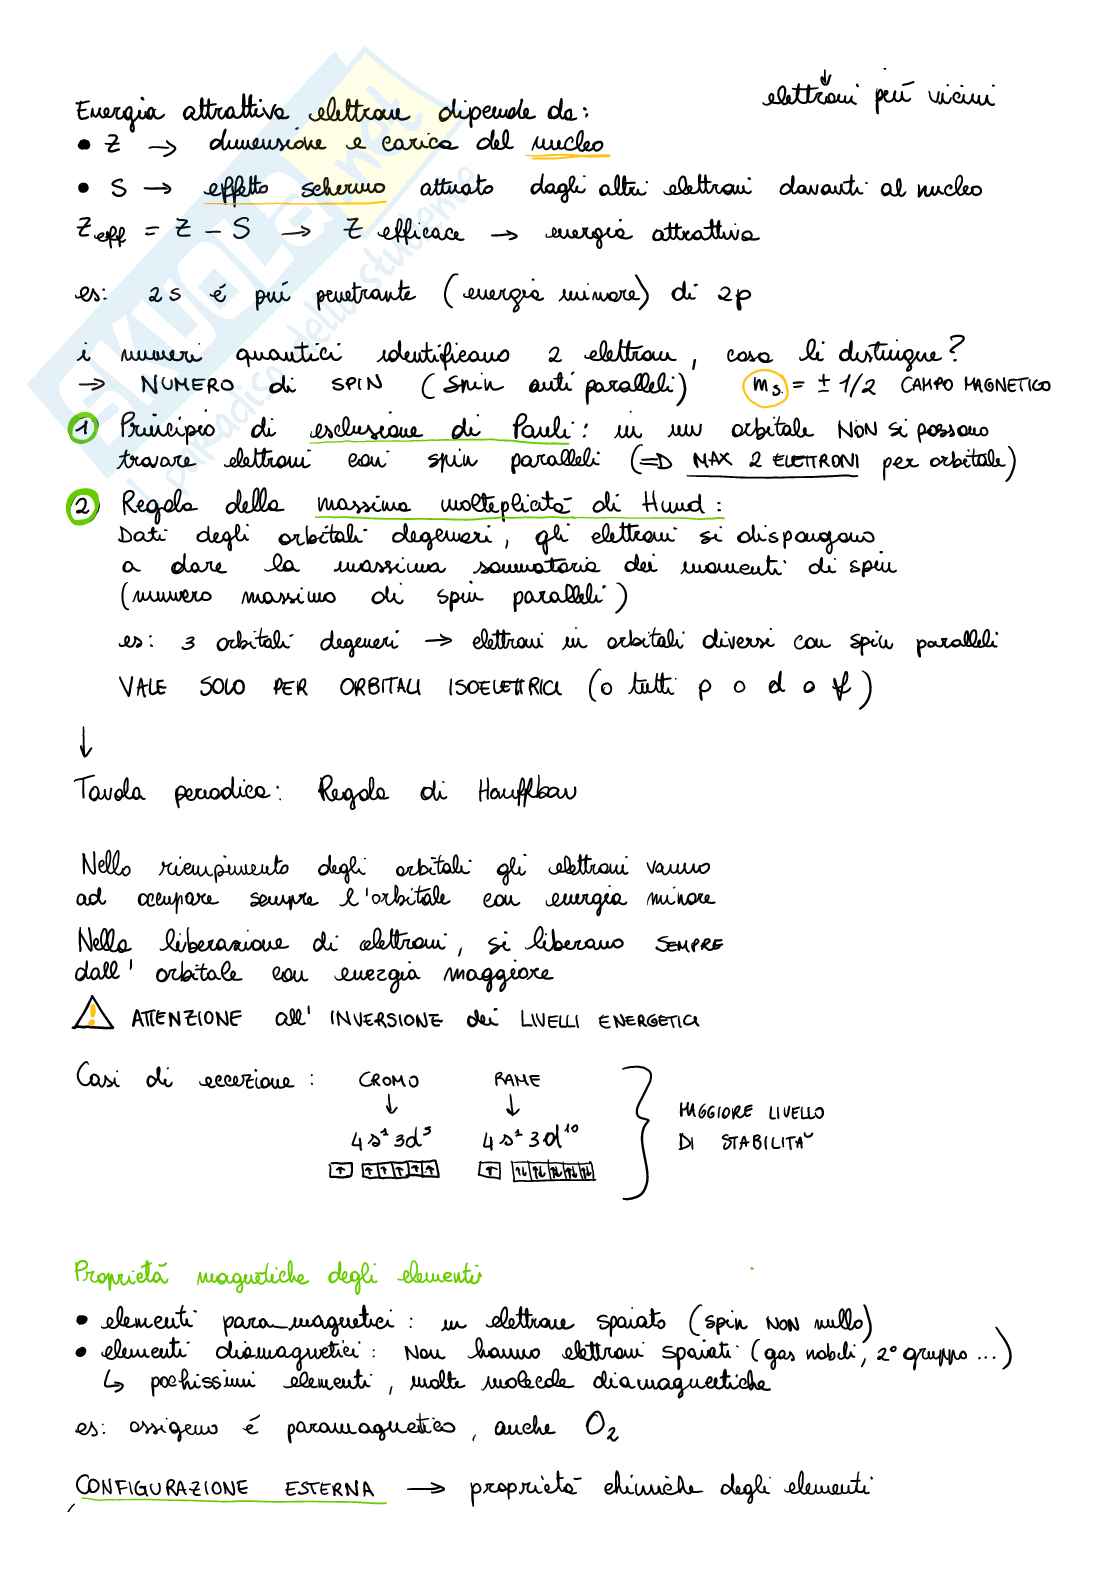 elettroni piú vicini
Energia attrattiva elettrone dipende da:
• Z → dimensione e carica del nucleo
• S → effetto schermo attuato dagli altri elettroni davanti al nucleo
Zeff = Z - S → Z efficace → energia attrattiva
es: 2s é piú penetrante (energia minore) di 2p
i numeri quantici identificano 2 elettroni, cosa li distingue?
→ NUMERO di SPIN (Spin anti paralleli) ms = ± 1/2 CAMPO MAGNETICO
1 Principio di esclusione di Pauli: in un orbitale NON si possono
trovare elettroni con spin paralleli (⇒ MAX 2 ELETTRONI per orbitale)
2 Regola della massima molteplicitá di Hund:
Dati degli orbitali degeneri, gli elettroni si dispongono
a dare la massima sommatoria dei momenti di spin
(numero massimo di spin paralleli)
es: 3 orbitali degeneri → elettroni in orbitali diversi con spin paralleli
VALE SOLO PER ORBITALI ISOELETTRICI (o tutti p o d o f)
↓
Tavola periodica: Regola di Hauffbau
Nello riempimento degli orbitali gli elettroni vanno
ad occupare sempre l'orbitale con energia minore
Nella liberazione di elettroni, si liberano SEMPRE
dall' orbitale con energia maggiore
! ATTENZIONE all' INVERSIONE dei LIVELLI ENERGETICI
Casi di eccezione: CROMO RAME
↓ ↓
4s¹3d⁵ 4s¹3d¹⁰
MAGGIORE LIVELLO
DI STABILITA'
Proprietá magnetiche degli elementi
• elementi para_magnetici: un elettrone spaiato (spin NON nullo)
• elementi diamagnetici: Non hanno elettroni spaiati (gas nobili, 2° gruppo ...)
↳ pochissimi elementi, molte molecole diamagnetiche
es: ossigeno é paramagnetico, anche O₂
CONFIGURAZIONE ESTERNA → proprietá chimiche degli elementi
SKUOLA.net
il paradiso dello studente